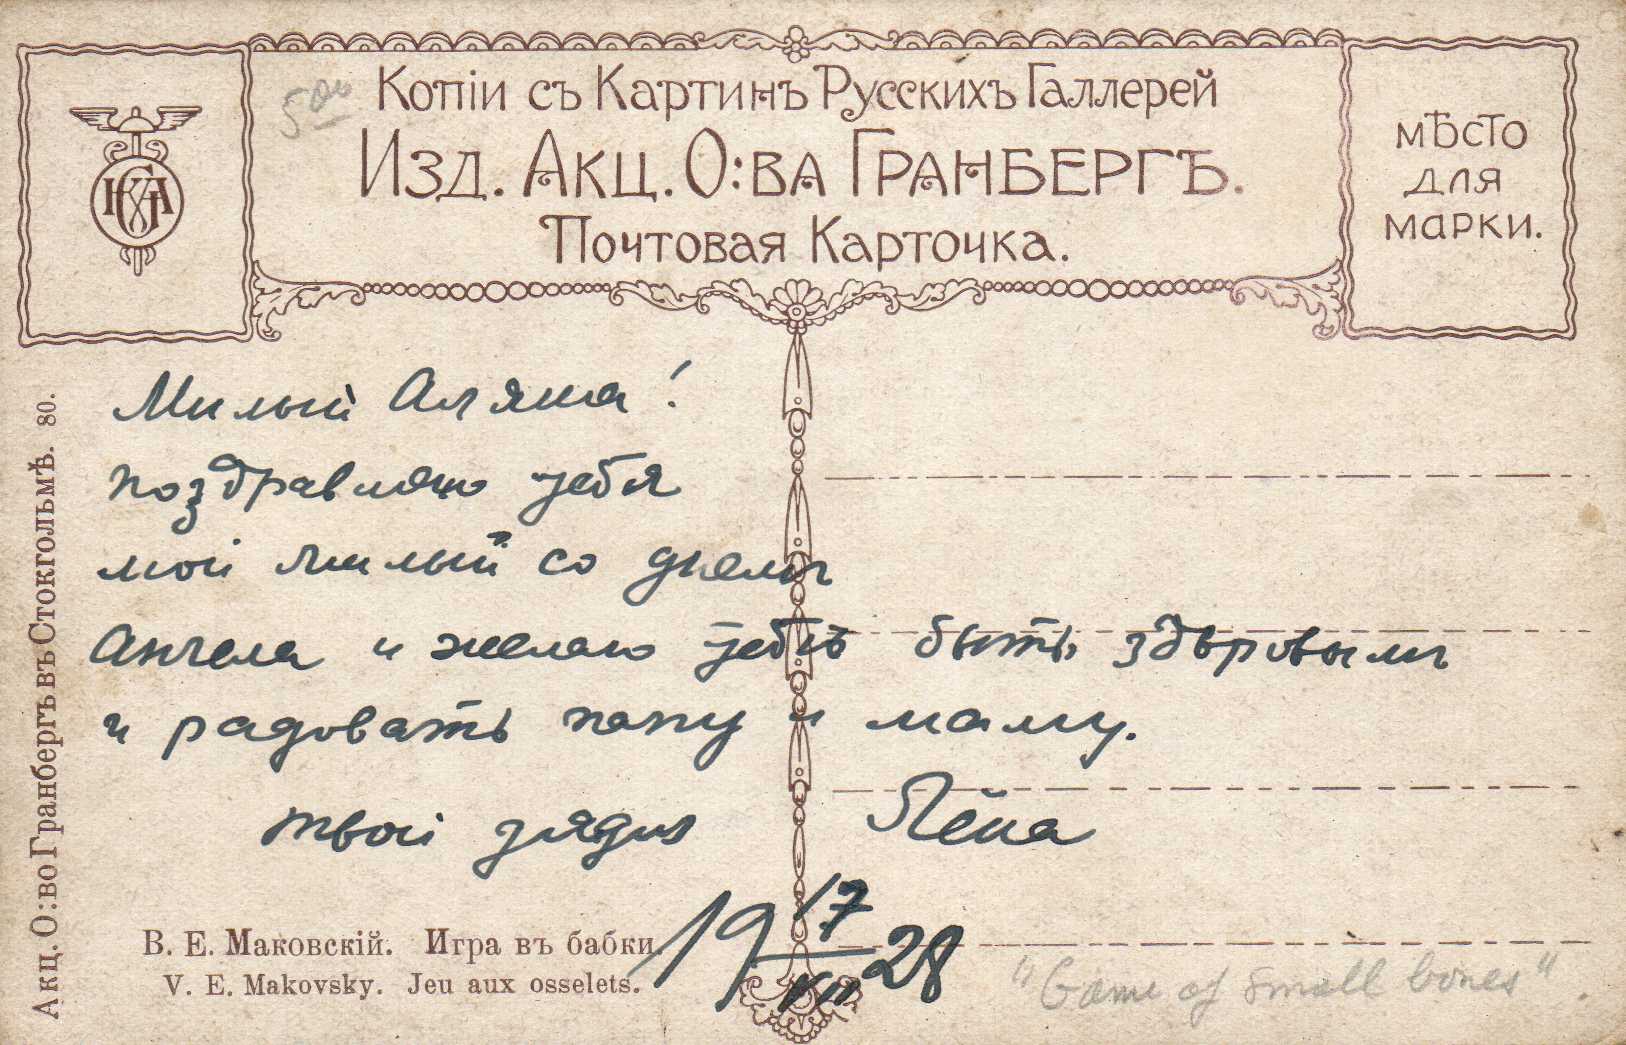 Копіи съ Картинъ Русскихъ Галлерей
Изд. Акц. О:ва Гранбергъ.
Почтовая Карточка.
мѣсто
для
марки.
5 00
Милый Аляша!
поздравляю тебя
мой милый со днемъ
Ангела и желаю тебѣ быть здоровымъ
и радовать папу и маму.
твой дядя Лёша
19 17/VII 28
В. Е. Маковскій. Игра въ бабки.
V. E. Makovsky. Jeu aux osselets.
"Game of small bones".
Акц. О:во Гранбергъ въ Стокгольмѣ. 80.